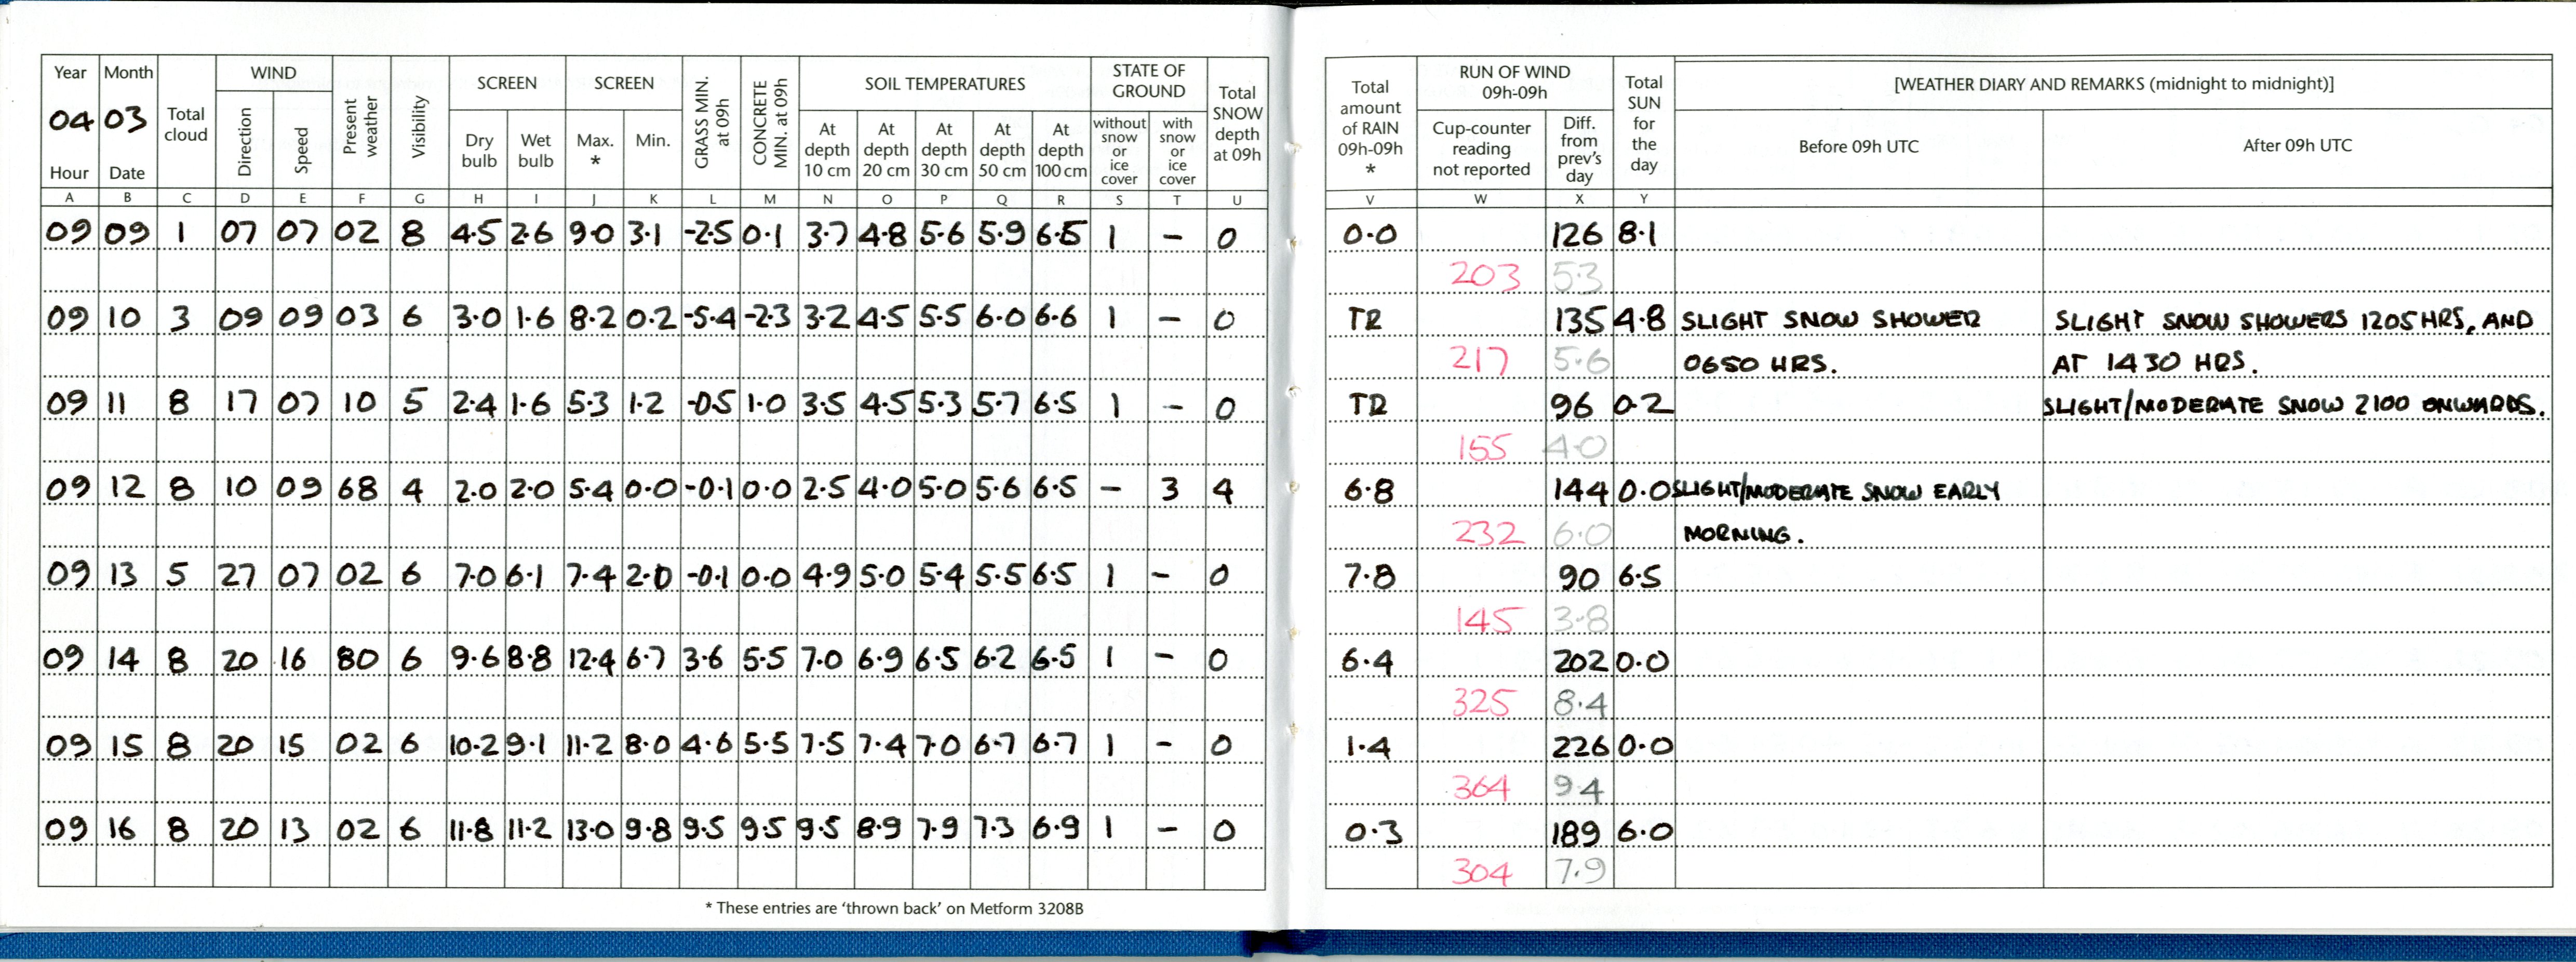 Year Month Total cloud WIND Present weather Visibility SCREEN SCREEN GRASS MIN. at 09h CONCRETE MIN. at 09h SOIL TEMPERATURES STATE OF GROUND Total SNOW depth at 09h
04 03 Direction Speed Dry bulb Wet bulb Max. * Min. At depth 10 cm At depth 20 cm At depth 30 cm At depth 50 cm At depth 100 cm without snow or ice cover with snow or ice cover
Hour Date
A B C D E F G H I J K L M N O P Q R S T U
09 09 1 07 07 02 8 4.5 2.6 9.0 3.1 -2.5 0.1 3.7 4.8 5.6 5.9 6.6 1 - 0
09 10 3 09 09 03 6 3.0 1.6 8.2 0.2 -5.4 -2.3 3.2 4.5 5.5 6.0 6.6 1 - 0
09 11 8 17 07 10 5 2.4 1.6 5.3 1.2 -0.5 1.0 3.5 4.5 5.3 5.7 6.5 1 - 0
09 12 8 10 09 68 4 2.0 2.0 5.4 0.0 -0.1 0.0 2.5 4.0 5.0 5.6 6.5 - 3 4
09 13 5 27 07 02 6 7.0 6.1 7.4 2.0 -0.1 0.0 4.9 5.0 5.4 5.5 6.5 1 - 0
09 14 8 20 16 80 6 9.6 8.8 12.4 6.7 3.6 5.5 7.0 6.9 6.5 6.2 6.5 1 - 0
09 15 8 20 15 02 6 10.2 9.1 11.2 8.0 4.6 5.5 7.5 7.4 7.0 6.7 6.7 1 - 0
09 16 8 20 13 02 6 11.8 11.2 13.0 9.8 9.5 9.5 9.5 8.9 7.9 7.3 6.9 1 - 0
* These entries are 'thrown back' on Metform 3208B
Total amount of RAIN 09h-09h * RUN OF WIND 09h-09h Total SUN for the day [WEATHER DIARY AND REMARKS (midnight to midnight)]
Cup-counter reading not reported Diff. from prev's day Before 09h UTC After 09h UTC
V W X Y
0.0 126 8.1
203 5.3
TR 135 4.8 SLIGHT SNOW SHOWER SLIGHT SNOW SHOWERS 1205 HRS, AND
217 5.6 0650 HRS. AT 1430 HRS.
TR 96 0.2 SLIGHT/MODERATE SNOW 2100 ONWARDS.
155 4.0
6.8 144 0.0 SLIGHT/MODERATE SNOW EARLY
232 6.0 MORNING.
7.8 90 6.5
145 3.8
6.4 202 0.0
325 8.4
1.4 226 0.0
364 9.4
0.3 189 6.0
304 7.9